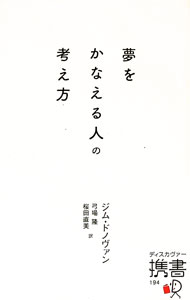 夢を
かなえる人の
考え方
ジム・ドノヴァン
弓場 隆
桜田直美 訳
ディスカヴァー
携書
194